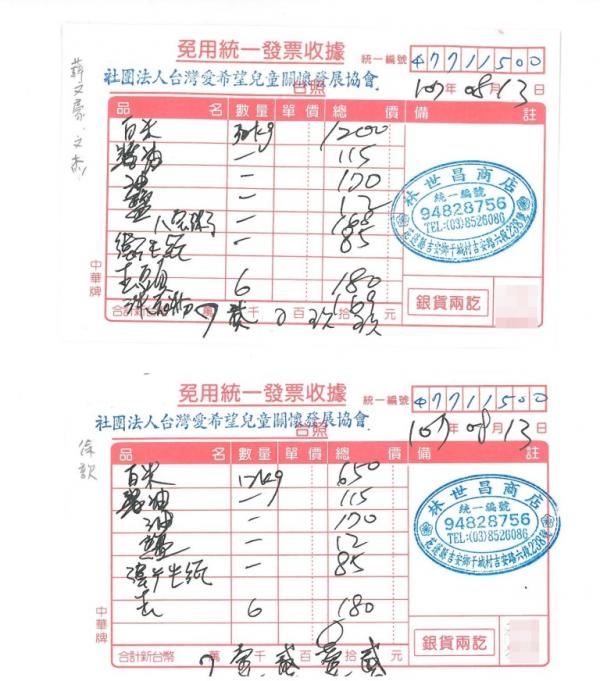 免用統一發票收據
統一編號 47711500
社團法人台灣愛希望兒童關懷發展協會
台照
107年08月13日
品名 數量 單價 總價 備註
白米 30kg 1200
醬油 一 115
油 一 170
鹽 一 12
八宝粥 一 168
衛生紙 一 85
6 180
159
合計新台幣 萬 貳 千 0 百 玖 拾 玖 元
銀貨兩訖
中華牌
林世昌商店
統一編號
94828756
TEL:(03)8526086
花蓮縣吉安鄉干城村吉安路六段238號
免用統一發票收據
統一編號 47711500
社團法人台灣愛希望兒童關懷發展協會
台照
107年08月13日
徐歆
品名 數量 單價 總價 備註
白米 kg 650
醬油 一 115
油 一 170
鹽 一 12
衛生紙 一 85
6 180
合計新台幣 萬 壹 千 貳 百 壹 拾 貳 元
銀貨兩訖
中華牌
林世昌商店
統一編號
94828756
TEL:(03)8526086
花蓮縣吉安鄉干城村吉安路六段238號